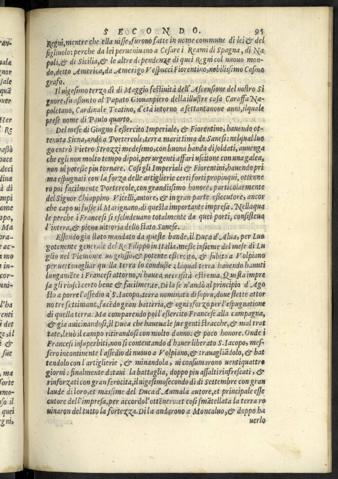 SECONDO. 95
Regni, mentre che ella visse, furono fatte in nome commune di lei & del
figliuolo: perche da lei pervenivano a Cesare i Reami di Spagna, di Na
poli, & di Sicilia, & le altre dipendenze di quei Regni col nuovo mon-
do, detto America, da Amerigo Vespucci Fiorentino, nobilissimo Cosmo
grafo.
Il vigesimo terzo dì di Maggio festività dell'Ascensione del nostro Si
gnore, fu assonto al Papato Giovanpiero della illustre casa Caraffa Na-
poletano, Cardinale Teatino, d'età intorno a settantanove anni, il quale
prese nome di Paulo quarto.
Del mese di Giugno l'esercito Imperiale, & Fiorentino, havendo ot-
tenuta Siena, andò a Portercole, terra maritima de Sanesi: nel qual luo
go entrò Pietro Strozzi medesimo, con buona banda di soldati, avvenga
che egli non molto tempo dipoi, per urgenti affari uscitone con una galea,
non vi potesse piu tornare. Cosi gli Imperiali & Fiorentini, havendo pri
ma espugnati con la forza delle artiglierie certi forti propinqui, ottenne
ro piu facilmente Portercole, con grandissimo honore, particolarmente
del Signor Chiappino Vitelli, autore, & in gran parte esecutore, ancor
che capo vi fusse il Marignano, di quella importante impresa. Nella qua
le perche i Francesi si escludevano totalmente da quei porti, consisteva
l'intera, & piena vittoria dello stato Sanese.
Essendo già stato mandato da queste bande, il Duca d'Alva, per Luo
gotenente generale del Re Filippo in Italia, mese insieme del mese di Lu
glio nel Piemonte un grosso, & potente esercito, & subito a Volpiano
per vettovagliar quella terra lo condusse: la qual terra havendo havuti
lungamente i Francesi attorno, si trovava in necessità estrema. Questa impre
sa gli riuscì certo bene & facilmente. Di là se n'andò al principio d'Ago
sto a porre l'assedio a S. Iacopo, terra nominata di sopra, dove stette attor
no tre settimane, facendo gran batteria, & ogni sforzo per l'espugnatione
di quella terra. Ma comparendo poi l'esercito Francese alla campagna,
& già avicinandosi, il Duca che haveva le sue genti stracche, & mal trat
tate, levò il campo ritirandosi con molto danno, & poco honore. Onde i
Francesi insuperbiti, non si contentando di haver liberato S. Iacopo, mes-
sero incontinente l'assedio di nuovo a Volpiano, & travagliatolo, & bat
tendolo con l'artiglierie, & minandolo, vi consumarono ventiquattro
giorni: finalmente datavi la battaglia, doppo piu assalti rinfrescati, &
rinforzati con gran ferocità, il vigesimo secondo dì di Settembre con gran
laude di loro, et massime del Duca d'Aumala autore, et principale esse
cutore dell'impresa, per accordo l'ottennero: et cosi smantellata la terra ro
vinaron del tutto la fortezza. Di là andarono a Moncalvo, & doppo ha
verlo